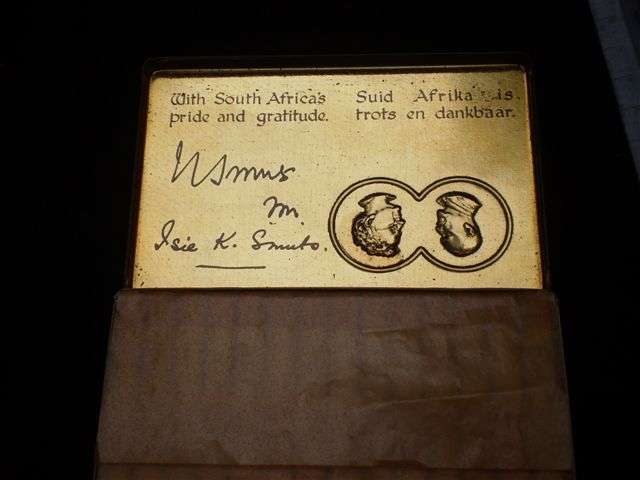 With South Africa's
pride and gratitude.
Suid Afrika is
trots en dankbaar.
JCSmuts
Isie K. Smuts.